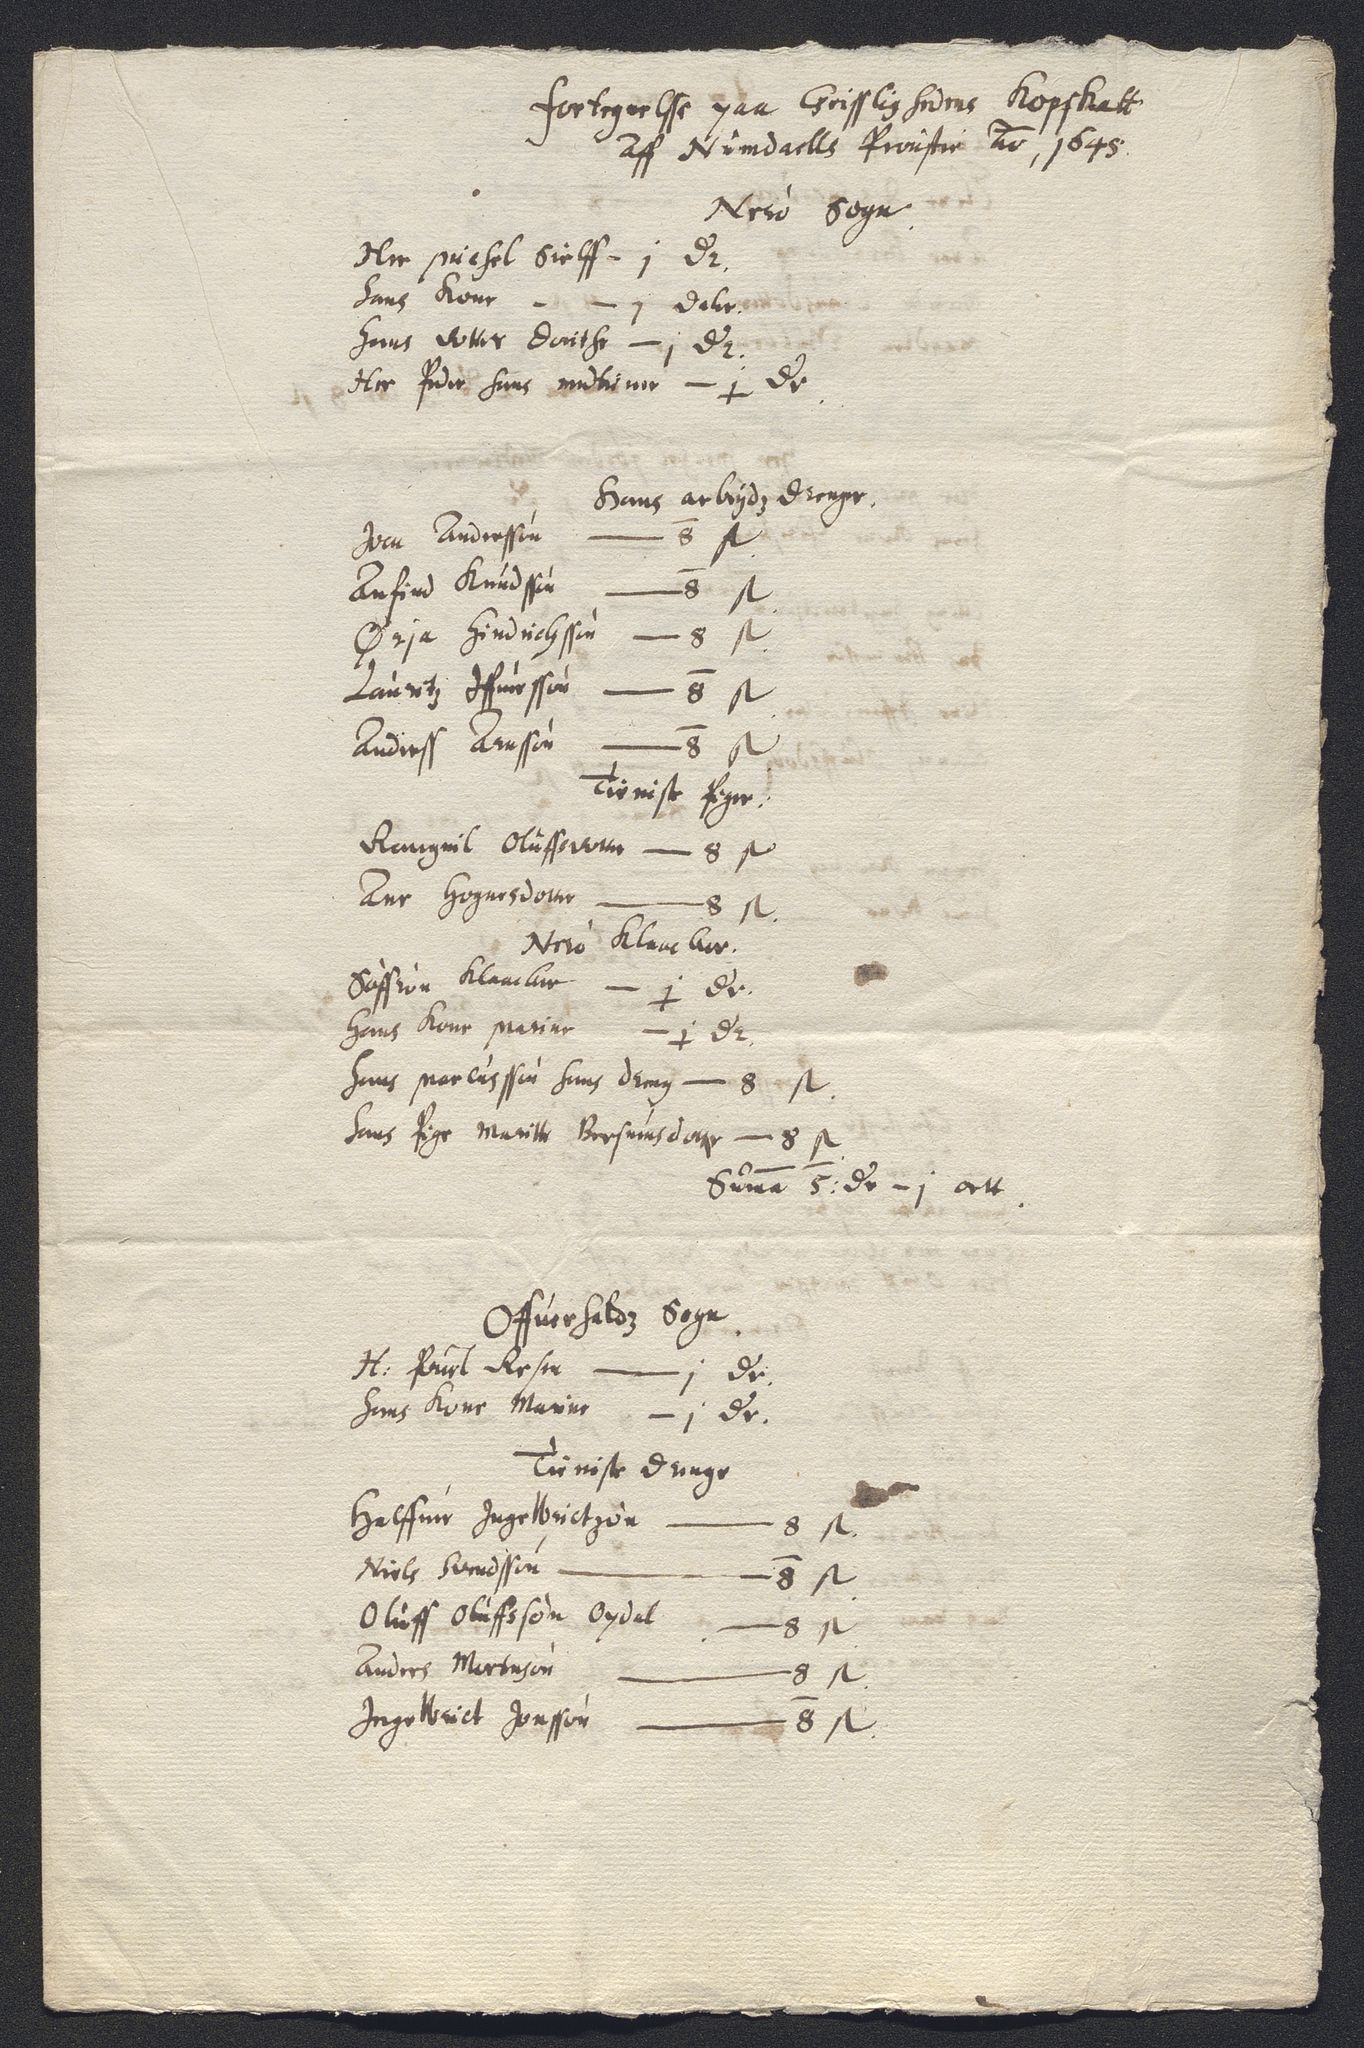 Fortegnelsse paa Geisslighedens Kopskatt
Aff Nümdaells Prousti Ao, 1645.
Nerö Sogn.
Her Michel Sielff - j dr.
Hans Kone - - j daler.
Hans dotter Dorithe - j dr.
Her Peder hans medtiener - j dr.
Hans arbeydz drenger.
Joen Anderssön — 8 sk.
Anfind Knudssön — 8 sk.
Ørja Hindrichssön — 8 sk.
Lauritz Iffuerssön — 8 sk.
Anderss Arnssön — 8 sk.
Tieniste Piger.
Rangnil Oluffsdotter — 8 sk.
Ane Hognesdotter — 8 sk.
Nerö Klaacker.
Söffren Klaacker - j dr.
Hans Kone Marine - j dr.
Hans Marcussön hans dreng — 8 sk.
Hans Pige Maritte dotter — 8 sk.
Suma 5: dr - j ortt.
Offuerhaldz Sogn.
H: Pouel Resen — j dr.
Hans Kone Marine - j dr.
Tieniste drenge
Halffuer Ingebrictzön — 8 sk.
Niels Suendssön — 8 sk.
Oluff Oluffssön Oydal — 8 sk.
Anders Mortensön — 8 sk.
Ingebrict Jonssön — 8 sk.